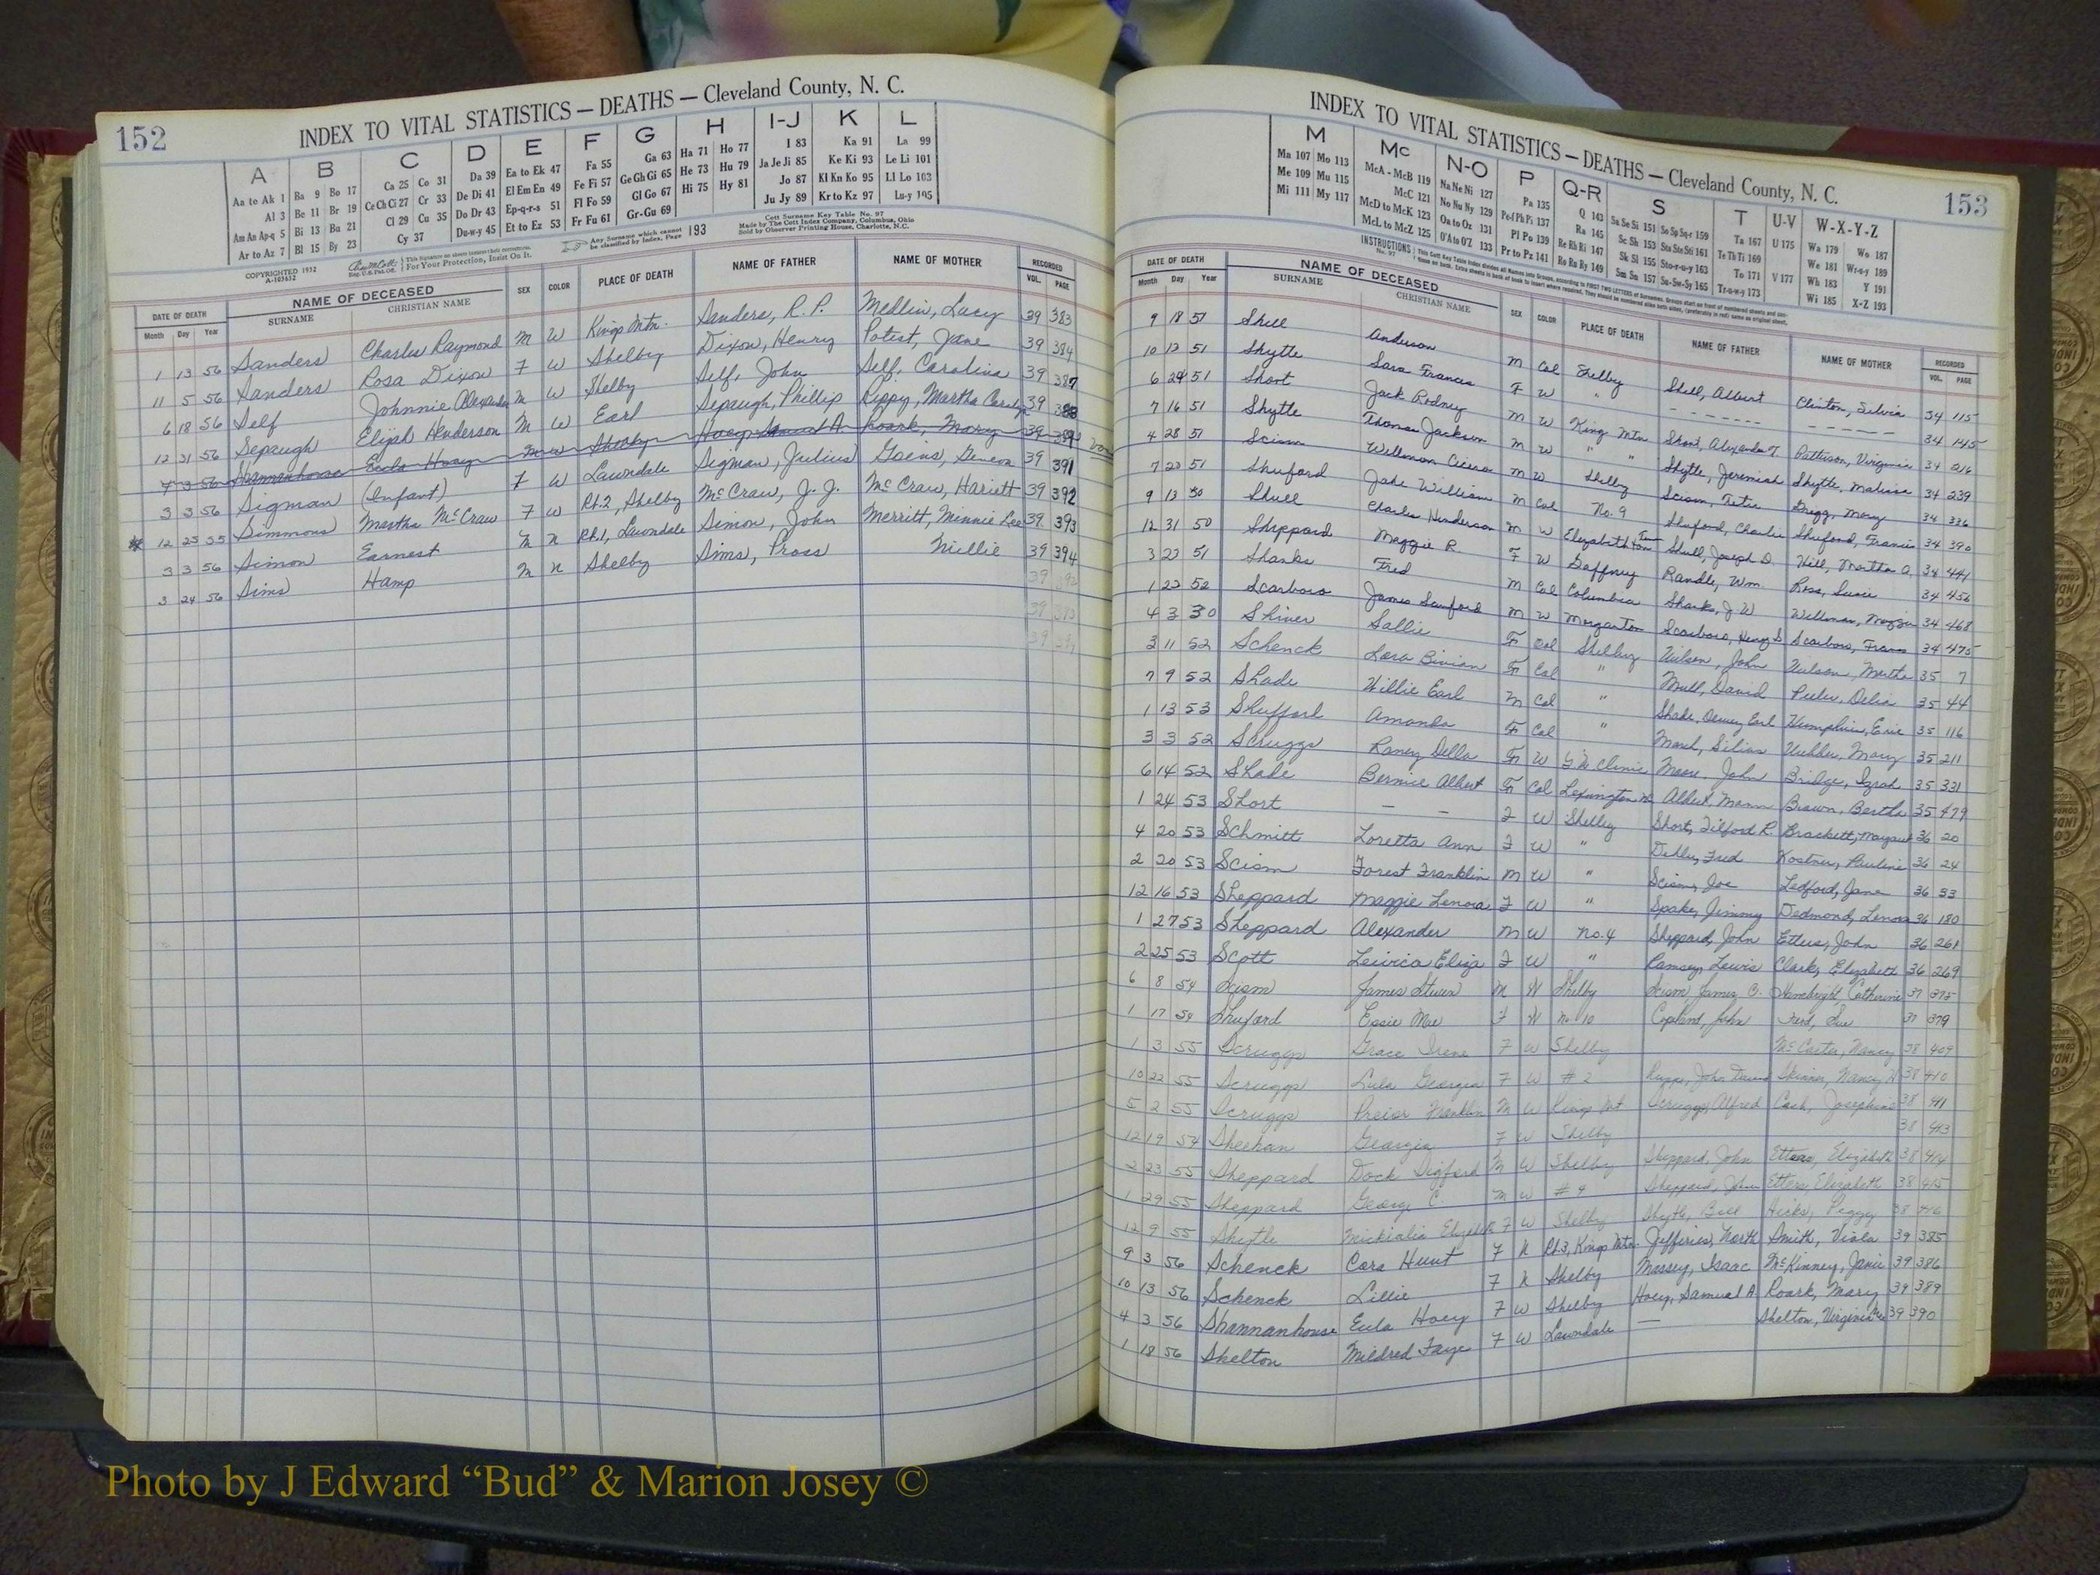 152
INDEX TO VITAL STATISTICS — DEATHS — Cleveland County, N. C.
A B C D E F G H I-J K L
Aa to Ak 1 Ba 9 Bo 17 Ca 25 Co 31 Da 39 Ea to Ek 47 Fa 55 Ga 63 Ha 71 Ho 77 I 83 Ka 91 La 99
Al 3 Be 11 Br 19 Ce Ch Ci 27 Cr 33 De Di 41 El Em En 49 Fe Fi 57 Ge Gh Gi 65 He 73 Hu 79 Ja Je Ji 85 Ke Ki 93 Le Li 101
Am An Ap-q 5 Bi 13 Bu 21 Cl 29 Cu 35 Do Dr 43 Ep-q-r-s 51 Fl Fo 59 Gl Go 67 Hi 75 Hy 81 Jo 87 Kl Kn Ko 95 Ll Lo 103
Ar to Az 7 Bl 15 By 23 Cy 37 Du-w-y 45 Et to Ez 53 Fr Fu 61 Gr-Gu 69 Ju Jy 89 Kr to Kz 97 Lu-y 105
COPYRIGHTED 1932
A-103452
For Your Protection, Insist On It.
Any Surname which cannot be classified by Index, Page 193
Cott Surname Key Table No. 97
Made by The Cott Index Company, Columbus, Ohio
Sold by Observer Printing House, Charlotte, N.C.
DATE OF DEATH NAME OF DECEASED SEX COLOR PLACE OF DEATH NAME OF FATHER NAME OF MOTHER RECORDED
Month Day Year SURNAME CHRISTIAN NAME VOL. PAGE
1 13 56 Sanders Charles Raymond M W Kings Mtn. Sanders, R. P. Medlin, Lucy 39 383
11 5 56 Sanders Rosa Dixon F W Shelby Dixon, Henry Poteet, Jane 39 384
6 18 56 Self Johnnie Alexander M W Shelby Self, John Self, Carolina 39 387
12 31 56 Sepaugh Elijah Henderson M W Earl Sepaugh, Phillip Rippy, Martha Carolyn 39 388
Shannanhouse Eula Hoey Shelby Hoey Samuel A Roark, Mary 39 389
3 3 56 Sigman (Infant) F W Lawndale Sigman, Julius Goins, Geneva 39 391
12 25 55 Simmons Martha McCraw F W Rt.2, Shelby McCraw, J. J. McCraw, Hariett 39 392
3 3 56 Simon Earnest M N Rt.1, Lawndale Simon, John Merritt, Minnie Lee 39 393
3 24 56 Sims Hamp M N Shelby Sims, Pross Millie 39 394
153
INDEX TO VITAL STATISTICS — DEATHS — Cleveland County, N. C.
M Mc N-O P Q-R S T U-V W-X-Y-Z
Ma 107 Mo 113 McA - McB 119 Na Ne Ni 127 Pa 135 Q 143 Sa Se Si 151 So Sp Sq-r 159 Ta 167 U 175 Wa 179 Wo 187
Me 109 Mu 115 McC 121 No Nu Ny 129 Pe-f Ph Pi 137 Ra 145 Sc Sh 153 Sta Ste Sti 161 Te Th Ti 169 We 181 Wr-u-y 189
Mi 111 My 117 McD to McK 123 Oa to Oz 131 Pl Po 139 Re Rh Ri 147 Sk Sl 155 Sto-r-u-y 163 To 171 V 177 Wh 183 Y 191
McL to McZ 125 O'A to O'Z 133 Pr to Pz 141 Ro Ru Ry 149 Sm Sn 157 Su-Sw-Sy 165 Tr-u-w-y 173 Wi 185 X-Z 193
INSTRUCTIONS
DATE OF DEATH NAME OF DECEASED SEX COLOR PLACE OF DEATH NAME OF FATHER NAME OF MOTHER RECORDED
Month Day Year SURNAME CHRISTIAN NAME VOL. PAGE
9 18 51 Shell Anderson M Col Shelby Shell, Albert Clinton, Silvia 34 115
10 12 51 Shytle Sara Frances F W " 34 145
6 24 51 Short Jack Rodney M W King Mtn Short, Alexander T Patterson, Virginia 34 216
7 16 51 Shytle Thomas Jackson M W " " Shytle, Jeremiah Shytle, Malissa 34 239
4 28 51 Scism Willman Cicero M W Shelby Scism, Peter Gregg, Mary 34 336
7 20 51 Shuford Jake William M Col No. 9 Shuford, Charlie Shuford, Francis 34 390
9 13 50 Shull Charles Henderson M W Elizabethton Tenn Shull, Joseph D. Hill, Martha A 34 441
12 31 50 Sheppard Maggie R. F W Gaffney Randle, Wm Ross, Susie 34 456
3 23 51 Shanks Fred M Col Columbia Shanks, J W 34 468
1 22 52 Scarboro James Sanford M W Morganton Scarboro, Henry S Scarboro, Frances 34 475
4 3 30 Shiver Sallie F Col Shelby Wilson, John Wilson, Martha 35 7
3 11 52 Schenck Lora Bivian F Col " Mull, David Peeler, Delia 35 44
7 9 52 Shade Willie Earl M Col " Shade, Dewey Earl Humphries, Evie 35 116
1 13 53 Shufford Amanda F Col " 35 211
3 3 52 Scruggs Raney Della F W G.W Clinic Moore, John Bridge, 35 331
6 14 52 Shade Bernice Albert F Col Lexington Albert, Mann Brown, Bertha 35 479
1 24 53 Short — — F W Shelby Short, Tilford R. Brackett, Margaret 36 20
4 20 53 Schmitt Loretta Ann F W " Fred Kostner, Pauline 36 24
2 20 53 Scism Forest Franklin M W " Scism, Joe Ledford, Jane 36 33
12 16 53 Sheppard Maggie Lenora F W " Spake, Jimmy Dedmond, Lenora 36 180
1 27 53 Sheppard Alexander M W No. 4 Sheppard, John Etters, John 36 261
2 25 53 Scott Leivica Eliza F W " Ramsey, Lewis Clark, Elizabeth 36 269
6 8 54 Scism James Steven M W Shelby Scism James C. Hambright Catherine 37 375
1 17 54 Shuford Essie Mae F W No. 10 Copeland, John Ford, Sue 37 379
1 3 55 Scruggs Grace Irene F W Shelby McCarter, Nancy 38 409
10 22 55 Scruggs Lula Georgia F W # 2 Skinner, Nancy 38 410
5 2 55 Scruggs Franklin M W Kings Mt Scruggs, Alfred Cash, Josephine 38 411
12 19 54 Sheehan Georgia F W Shelby 38 413
2 23 55 Sheppard Dock M W Shelby Sheppard, John Etters, Elizabeth 38 414
1 29 55 Sheppard Georg C. M W # 9 Sheppard, John Etters, Elizabeth 38 415
12 9 55 Shytle Elizabeth F W Shelby Shytle, Bill Hicks, Peggy 38 416
9 3 56 Schenck Cora Hunt F N Rt.3, Kings Mtn. Jefferies, North Smith, Viola 39 385
10 13 56 Schenck Lillie F N Shelby Massey, Isaac McKinney, Janie 39 386
4 3 56 Shannanhouse Eula Hoey F W Shelby Hoey, Samual A Roark, Mary 39 389
1 18 56 Shelton Mildred Faye F W Lawndale — Shelton, Virginia 39 390
Photo by J Edward “Bud” & Marion Josey ©